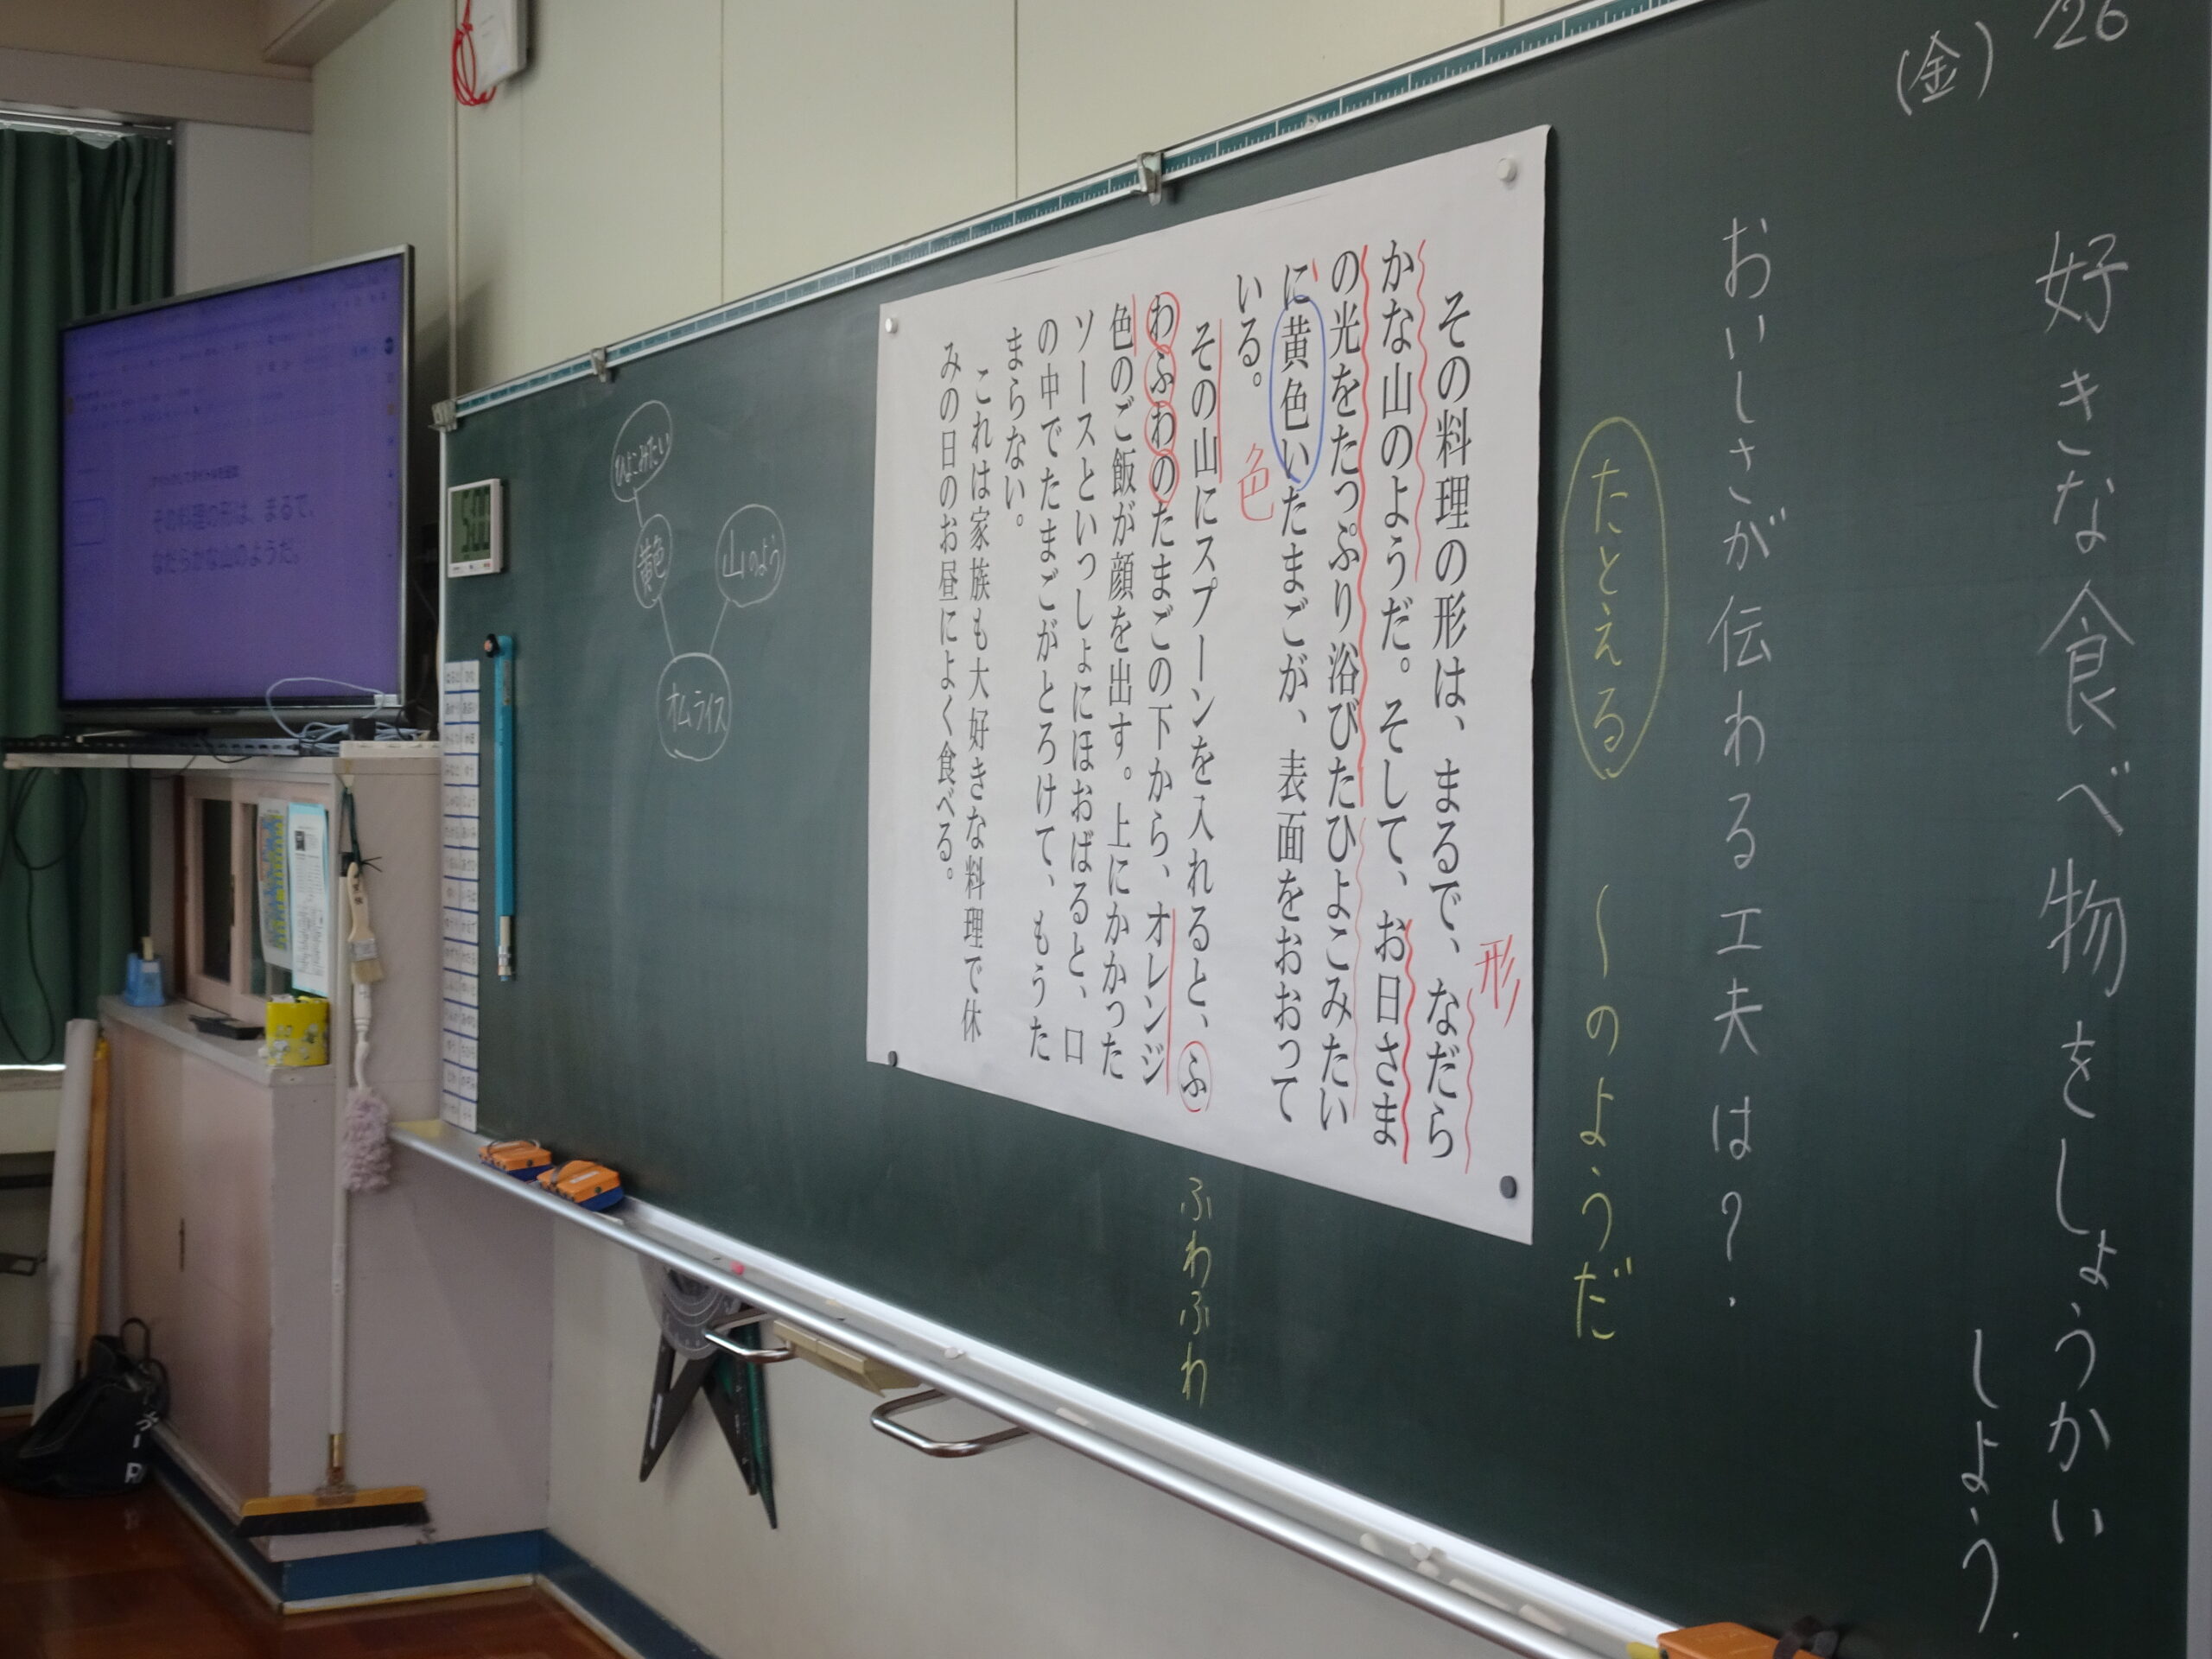 26
(金)
好きな食べ物をしょうかい
しよう.
おいしさが伝わる工夫は?.
たとえる 〜のようだ
形
その料理の形は、まるで、なだら
かな山のようだ。そして、お日さま
の光をたっぷり浴びたひよこみたい
に黄色いたまごが、表面をおおって
いる。
色
その山にスプーンを入れると、ふ
わふわのたまごの下から、オレンジ
色のご飯が顔を出す。上にかかった
ソースといっしょにほおばると、口
の中でたまごがとろけて、もうた
まらない。
これは家族も大好きな料理で休
みの日のお昼によく食べる。
ふわふわ
山のよう
オムライス
黄色
ひよこみたい
その料理の形は、まるで、
なだらかな山のようだ。